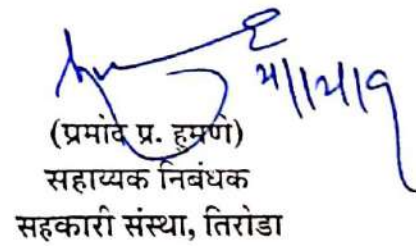 (प्रमोद प्र. हुमणे)
सहाय्यक निबंधक
सहकारी संस्था, तिरोडा